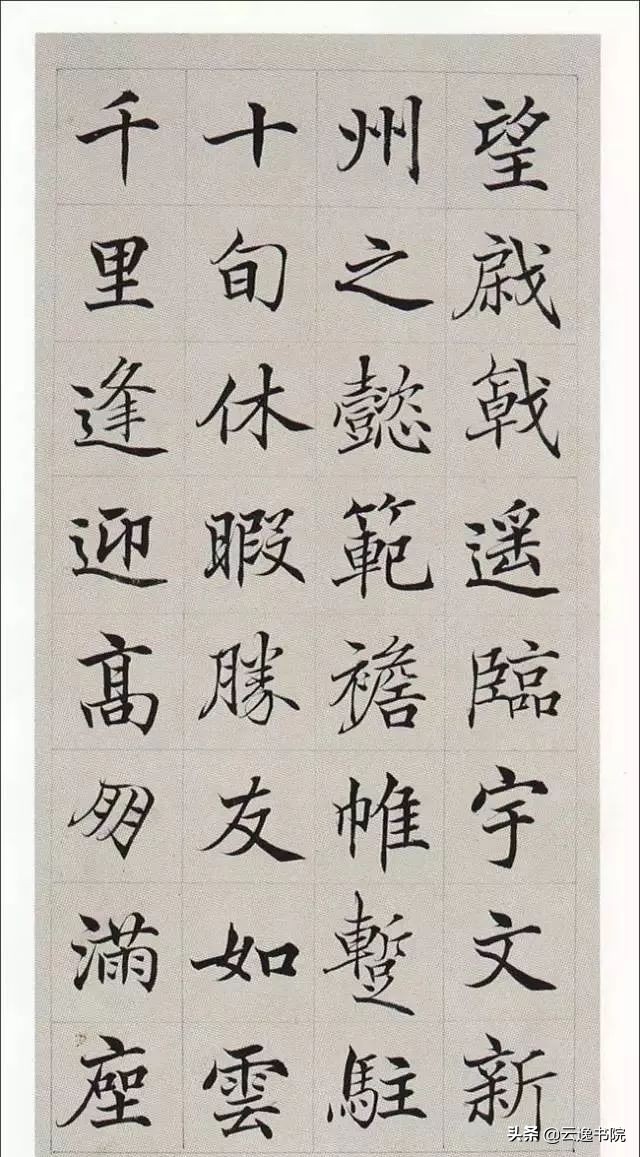 望戚戟遥臨宇文新
州之懿範襜帷蹔駐
十旬休暇勝友如雲
千里逢迎髙朋滿座
头条 @云逸书院